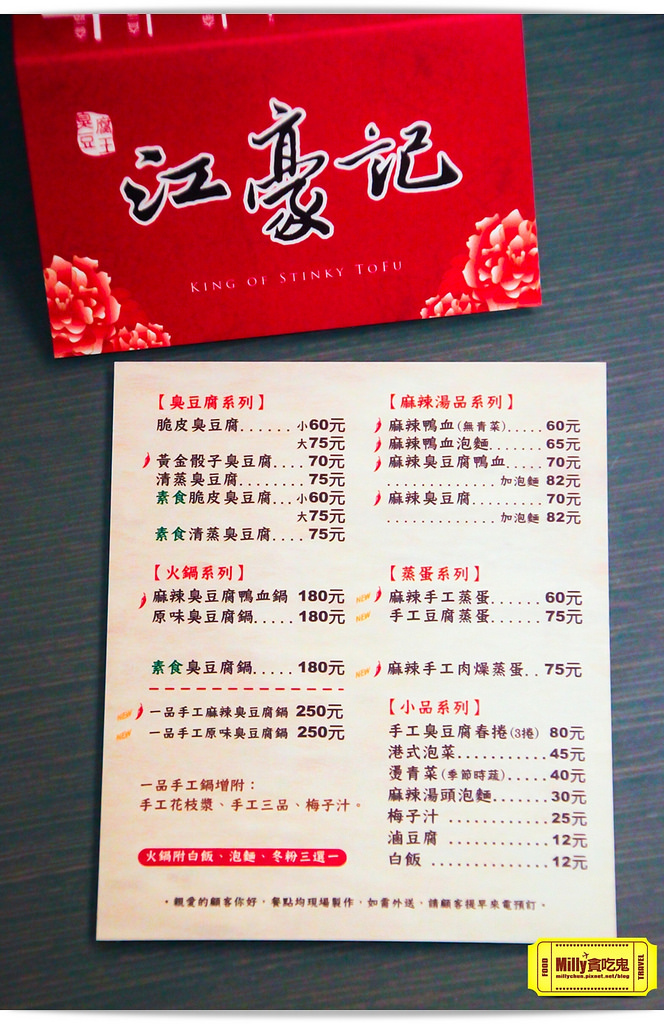 臭豆
腐王
江豪記
KING OF STINKY TOFU
【臭豆腐系列】
脆皮臭豆腐......小60元
大75元
黃金骰子臭豆腐....70元
清蒸臭豆腐........75元
素食脆皮臭豆腐...小60元
大75元
素食清蒸臭豆腐....75元
【火鍋系列】
麻辣臭豆腐鴨血鍋 180元
原味臭豆腐鍋.....180元
素食臭豆腐鍋.....180元
NEW 一品手工麻辣臭豆腐鍋 250元
NEW 一品手工原味臭豆腐鍋 250元
一品手工鍋增附：
手工花枝漿、手工三品、梅子汁。
火鍋附白飯、泡麵、冬粉三選一
【麻辣湯品系列】
麻辣鴨血(無青菜).....60元
麻辣鴨血泡麵.......65元
麻辣臭豆腐鴨血.....70元
..............加泡麵 82元
麻辣臭豆腐.........70元
..............加泡麵 82元
【蒸蛋系列】
NEW 麻辣手工蒸蛋......60元
NEW 手工豆腐蒸蛋......75元
NEW 麻辣手工肉燥蒸蛋..75元
【小品系列】
手工臭豆腐春捲(3捲) 80元
港式泡菜...........45元
燙青菜(季節時蔬).....40元
麻辣湯頭泡麵.......30元
梅子汁 ............25元
滷豆腐 ............12元
白飯 ..............12元
・親愛的顧客你好，餐點均現場製作，如需外送，請顧客提早來電預訂。
FOOD
Milly貪吃鬼
millychun.pixnet.net/blog
TRAVEL